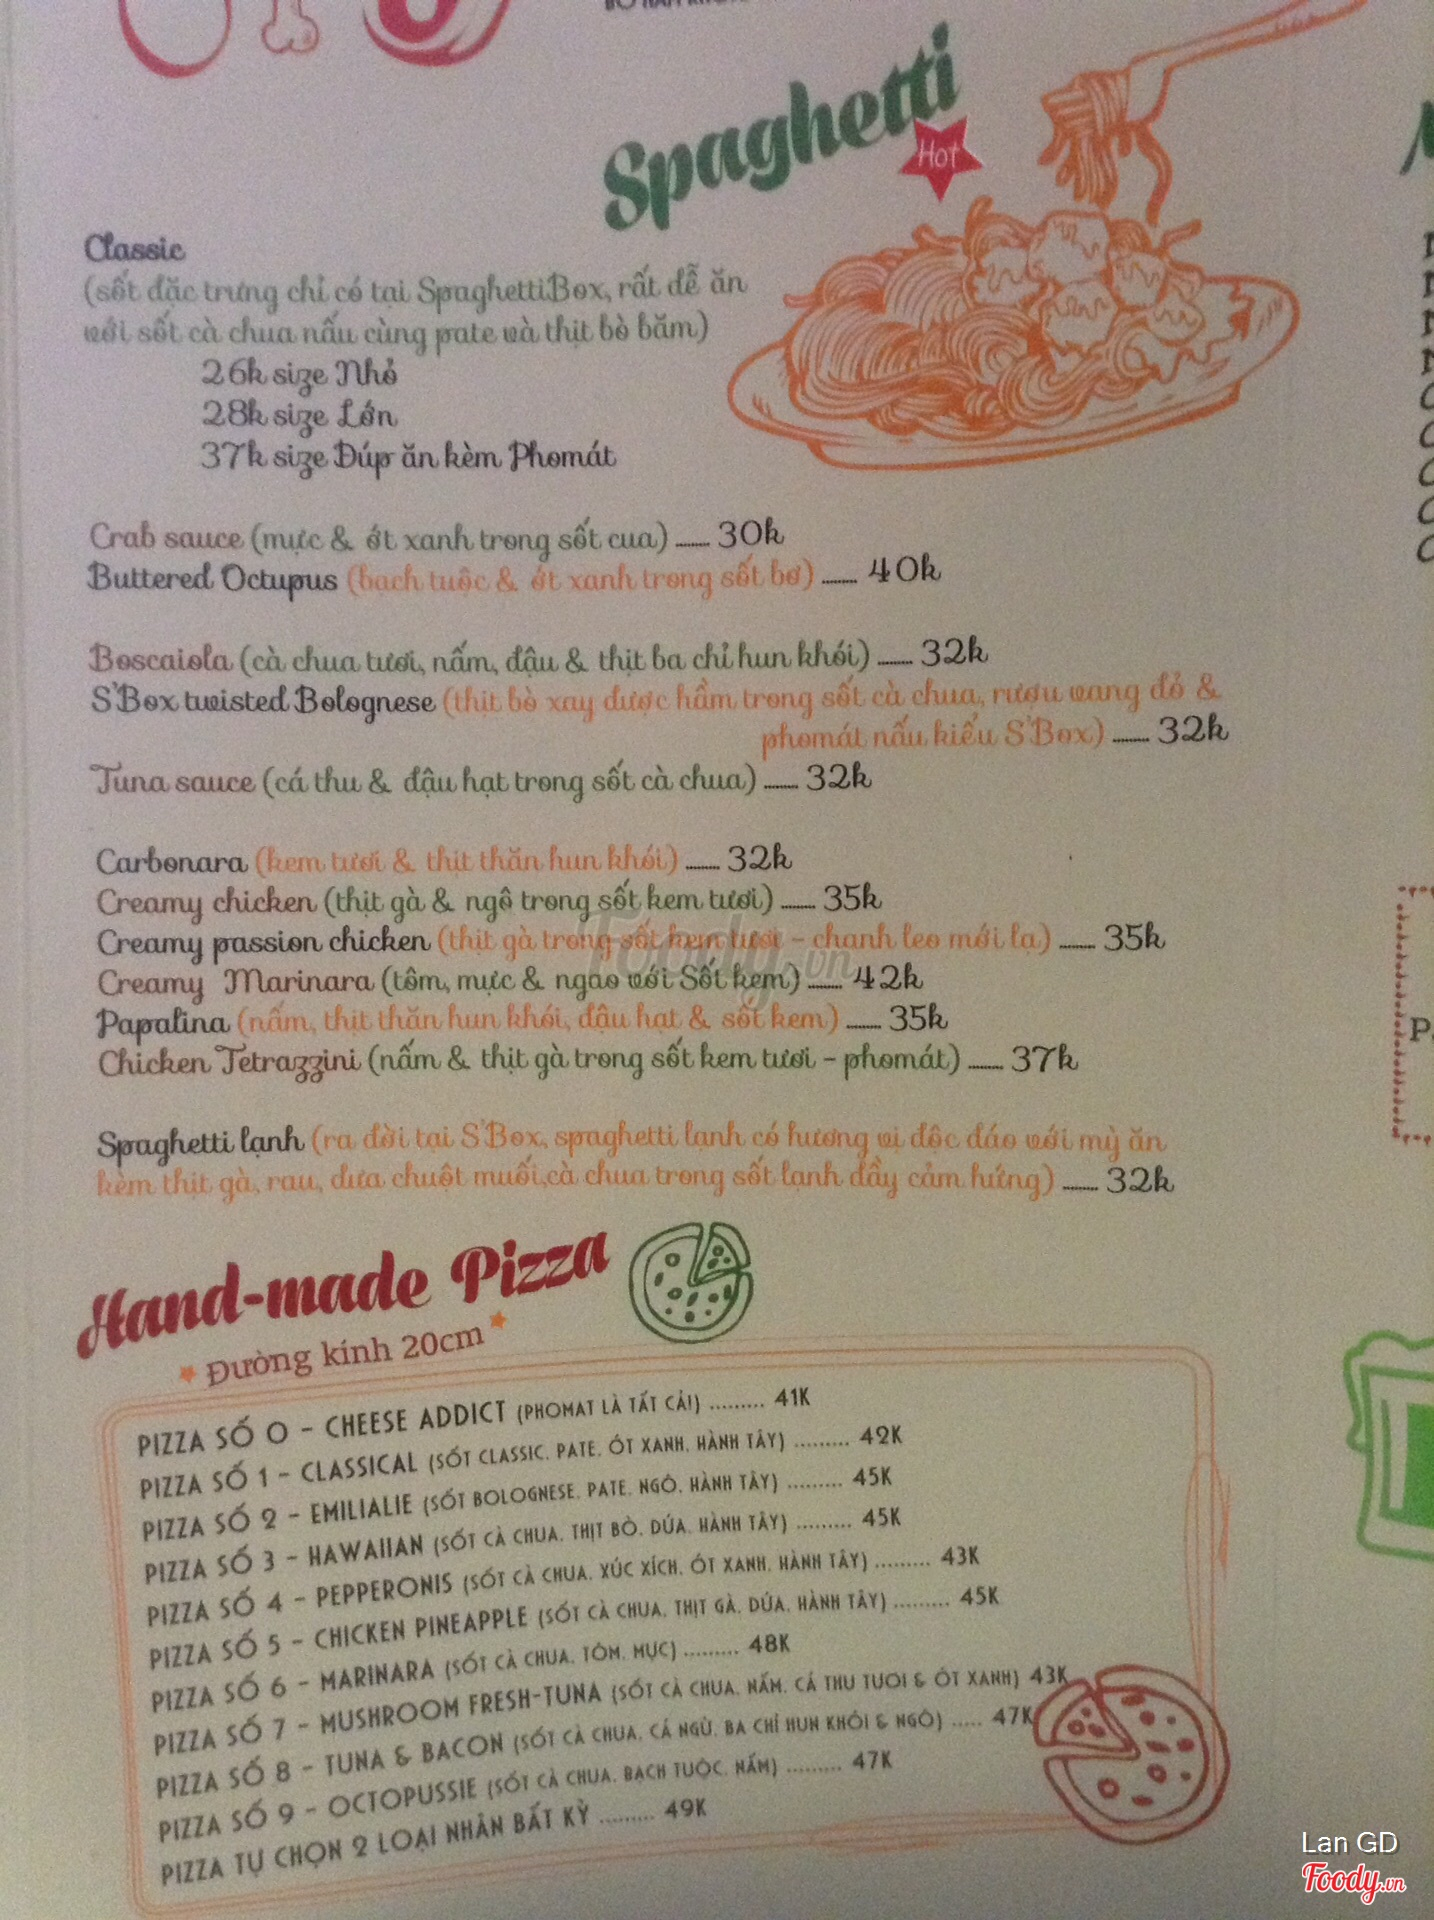 Spaghetti
Hot
Classic
(sốt đặc trưng chỉ có tại SpaghettiBox, rất dễ ăn
với sốt cà chua nấu cùng pate và thịt bò băm)
26k size Nhỏ
28k size Lớn
37k size Đúp ăn kèm Phomát
Crab sauce (mực & ớt xanh trong sốt cua) ...... 30k
Buttered Octupus (bạch tuộc & ớt xanh trong sốt bơ) ...... 40k
Boscaiola (cà chua tươi, nấm, đậu & thịt ba chỉ hun khói) ...... 32k
S'Box twisted Bolognese (thịt bò xay được hầm trong sốt cà chua, rượu vang đỏ &
phomát nấu kiểu S'Box) ...... 32k
Tuna sauce (cá thu & đậu hạt trong sốt cà chua) ...... 32k
Carbonara (kem tươi & thịt thăn hun khói) ...... 32k
Creamy chicken (thịt gà & ngô trong sốt kem tươi) ...... 35k
Creamy passion chicken (thịt gà trong sốt kem tươi - chanh leo mới lạ) ...... 35k
Creamy Marinara (tôm, mực & ngao với Sốt kem) ...... 42k
Papalina (nấm, thịt thăn hun khói, đậu hạt & sốt kem) ...... 35k
Chicken Tetrazzini (nấm & thịt gà trong sốt kem tươi - phomát) ...... 37k
Spaghetti lạnh (ra đời tại S'Box, spaghetti lạnh có hương vị độc đáo với mỳ ăn
kèm thịt gà, rau, dưa chuột muối,cà chua trong sốt lạnh đầy cảm hứng) ...... 32k
Hand-made Pizza
Đường kính 20cm
PIZZA SỐ 0 - CHEESE ADDICT (PHOMAT LÀ TẤT CẢ!) ......... 41K
PIZZA SỐ 1 - CLASSICAL (SỐT CLASSIC, PATE, ỚT XANH, HÀNH TÂY) ......... 42K
PIZZA SỐ 2 - EMILIALIE (SỐT BOLOGNESE, PATE, NGÔ, HÀNH TÂY) ......... 45K
PIZZA SỐ 3 - HAWAIIAN (SỐT CÀ CHUA, THỊT BÒ, DỨA, HÀNH TÂY) ......... 45K
PIZZA SỐ 4 - PEPPERONIS (SỐT CÀ CHUA, XÚC XÍCH, ỚT XANH, HÀNH TÂY) ......... 43K
PIZZA SỐ 5 - CHICKEN PINEAPPLE (SỐT CÀ CHUA, THỊT GÀ, DỨA, HÀNH TÂY) ......... 45K
PIZZA SỐ 6 - MARINARA (SỐT CÀ CHUA, TÔM, MỰC) ......... 48K
PIZZA SỐ 7 - MUSHROOM FRESH-TUNA (SỐT CÀ CHUA, NẤM, CÁ THU TƯƠI & ỚT XANH) 43K
PIZZA SỐ 8 - TUNA & BACON (SỐT CÀ CHUA, CÁ NGỪ, BA CHỈ HUN KHÓI & NGÔ) ..... 47K
PIZZA SỐ 9 - OCTOPUSSIE (SỐT CÀ CHUA, BẠCH TUỘC, NẤM) ......... 47K
PIZZA TỰ CHỌN 2 LOẠI NHÂN BẤT KỲ ......... 49K
Foody.vn
Lan GD
Foody.vn